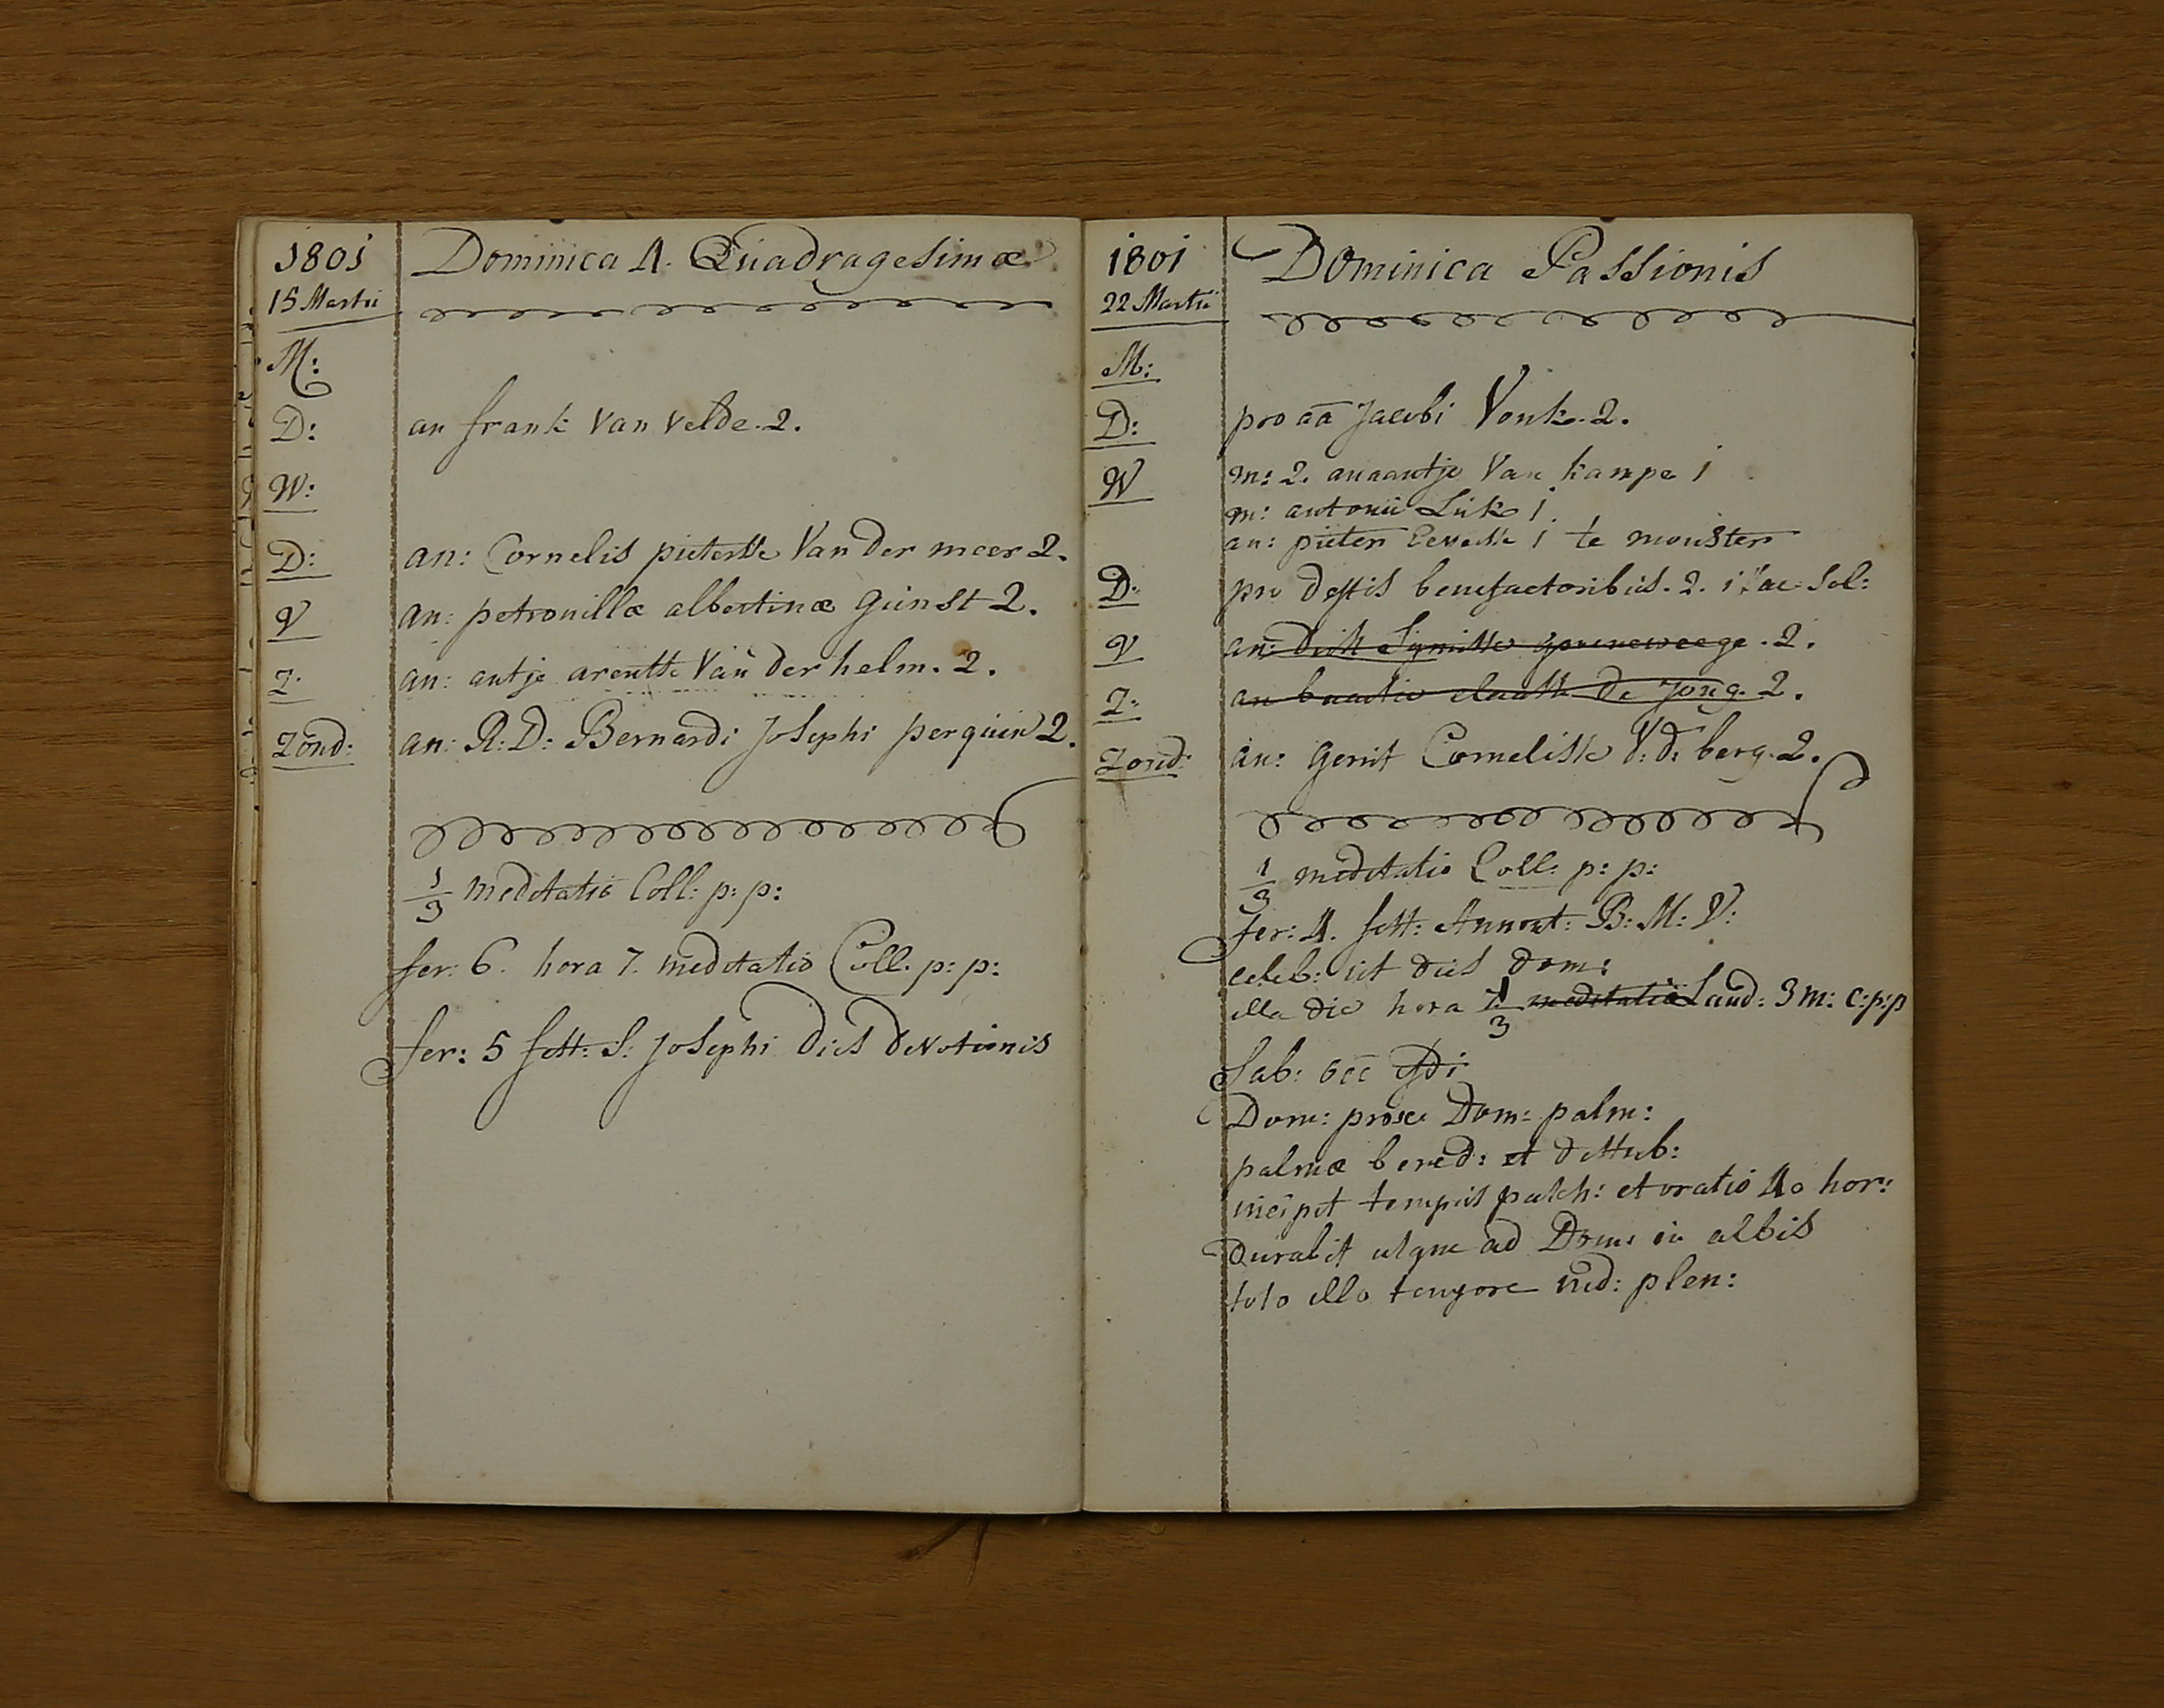 1801
15 Martii
Dominica 4. Quadragesimæ
M:
D: an frank van velde. 2.
W:
D: an: Cornelis pieterse van der meer 2.
V an: petronillæ albertinæ gunst 2.
Z. an: antje arentse van der helm. 2.
Zond: an: R: D: Bernardi Josephi perquin 2.
1/3 meditatio Coll: p: p:
fer: 6. hora 7. meditatio Coll. p: p:
fer: 5 fest: S: Josephi dies devotionis
1801
22 Martii
Dominica Passionis
M:
D: pro aā Jacobi Vonk. 2.
W m: 2. annantje Van kampe 1
m: antonii Luk 1.
an: pieter 1 te monster
D: pro dftis benefactoribus. 2. ac Sol:
V an: groeneweege. 2.
Z: an claasse de Jong. 2.
Zond: an: gerrit Cornelisse v: d: berg. 2.
1/3 meditatio Coll: p: p:
fer: 4. fest: Annont: B: M: V:
celeb: ut dies dom:
illa die hora 7 1/3 meditatio Laud: 3 m: c: p: p
Sab: occ
Dom: prox Dom: palm:
palmæ bened: et distrib:
incipit tempus pasch: et oratio 40 hor:
durabit usque ad Dom: in albis
toto illo tempore ind: plen: